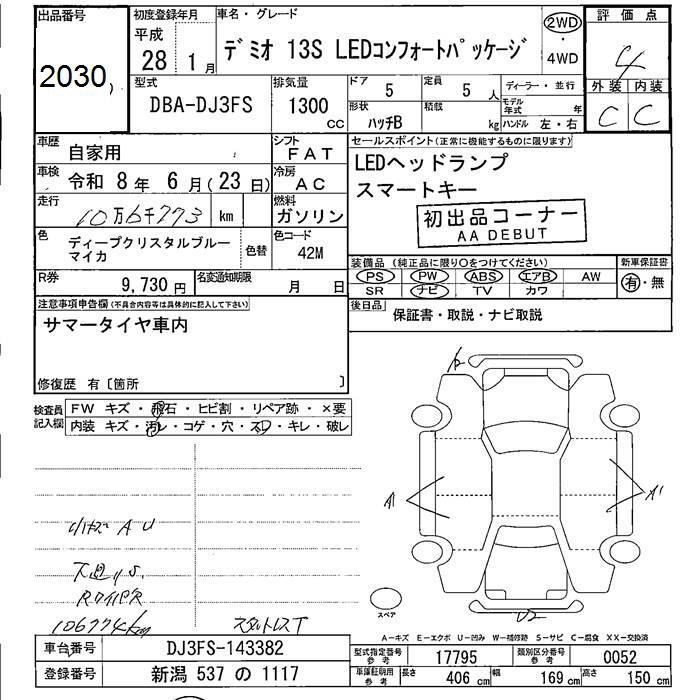 出品番号 初度登録年月 車名・グレード 評価点
2030
平成 28 1月
デミオ 13S LEDコンフォートパッケージ
2WD・4WD
4
外装 内装
C C
型式 DBA-DJ3FS
排気量 1300 CC
ドア 5
定員 5人
ディーラー・並行
形状 ハッチB
積載 kg
モデル年式 年
ハンドル 左・右
車歴 自家用
シフト FAT
セールスポイント(正常に機能するものに限ります)
LEDヘッドランプ
スマートキー
車検 令和 8年 6月(23日)
冷房 AC
走行 10万6千773 km
燃料 ガソリン
初出品コーナー
AA DEBUT
色 ディープクリスタルブルーマイカ
色替
色コード 42M
装備品(純正品に限り○をつけてください) 新車保証書
PS PW ABS エアB AW
SR ナビ TV カワ
有・無
R券 9,730円
名変通知期限 月 日
後日品 保証書・取説・ナビ取説
注意事項申告欄(不具合内容等は具体的に記入して下さい)
サマータイヤ車内
修復歴 有〔箇所 〕
検査員記入欄
FW キズ・飛石・ヒビ割・リペア跡・×要
内装 キズ・汚レ・コゲ・穴・スレ・キレ・破レ
A1 A1
小キズ A U
下廻りS.
RワイパR
106774km
スタットレスT
スペア
U2
A-キズ E-エクボ U-凹み W-補修跡 S-サビ C-腐食 XX-交換済
車台番号 DJ3FS-143382
型式指定番号 参考 17795
類別区分番号 参考 0052
登録番号 新潟 537 の 1117
車庫証明用 参考 長さ 406 cm 幅 169 cm 高さ 150 cm